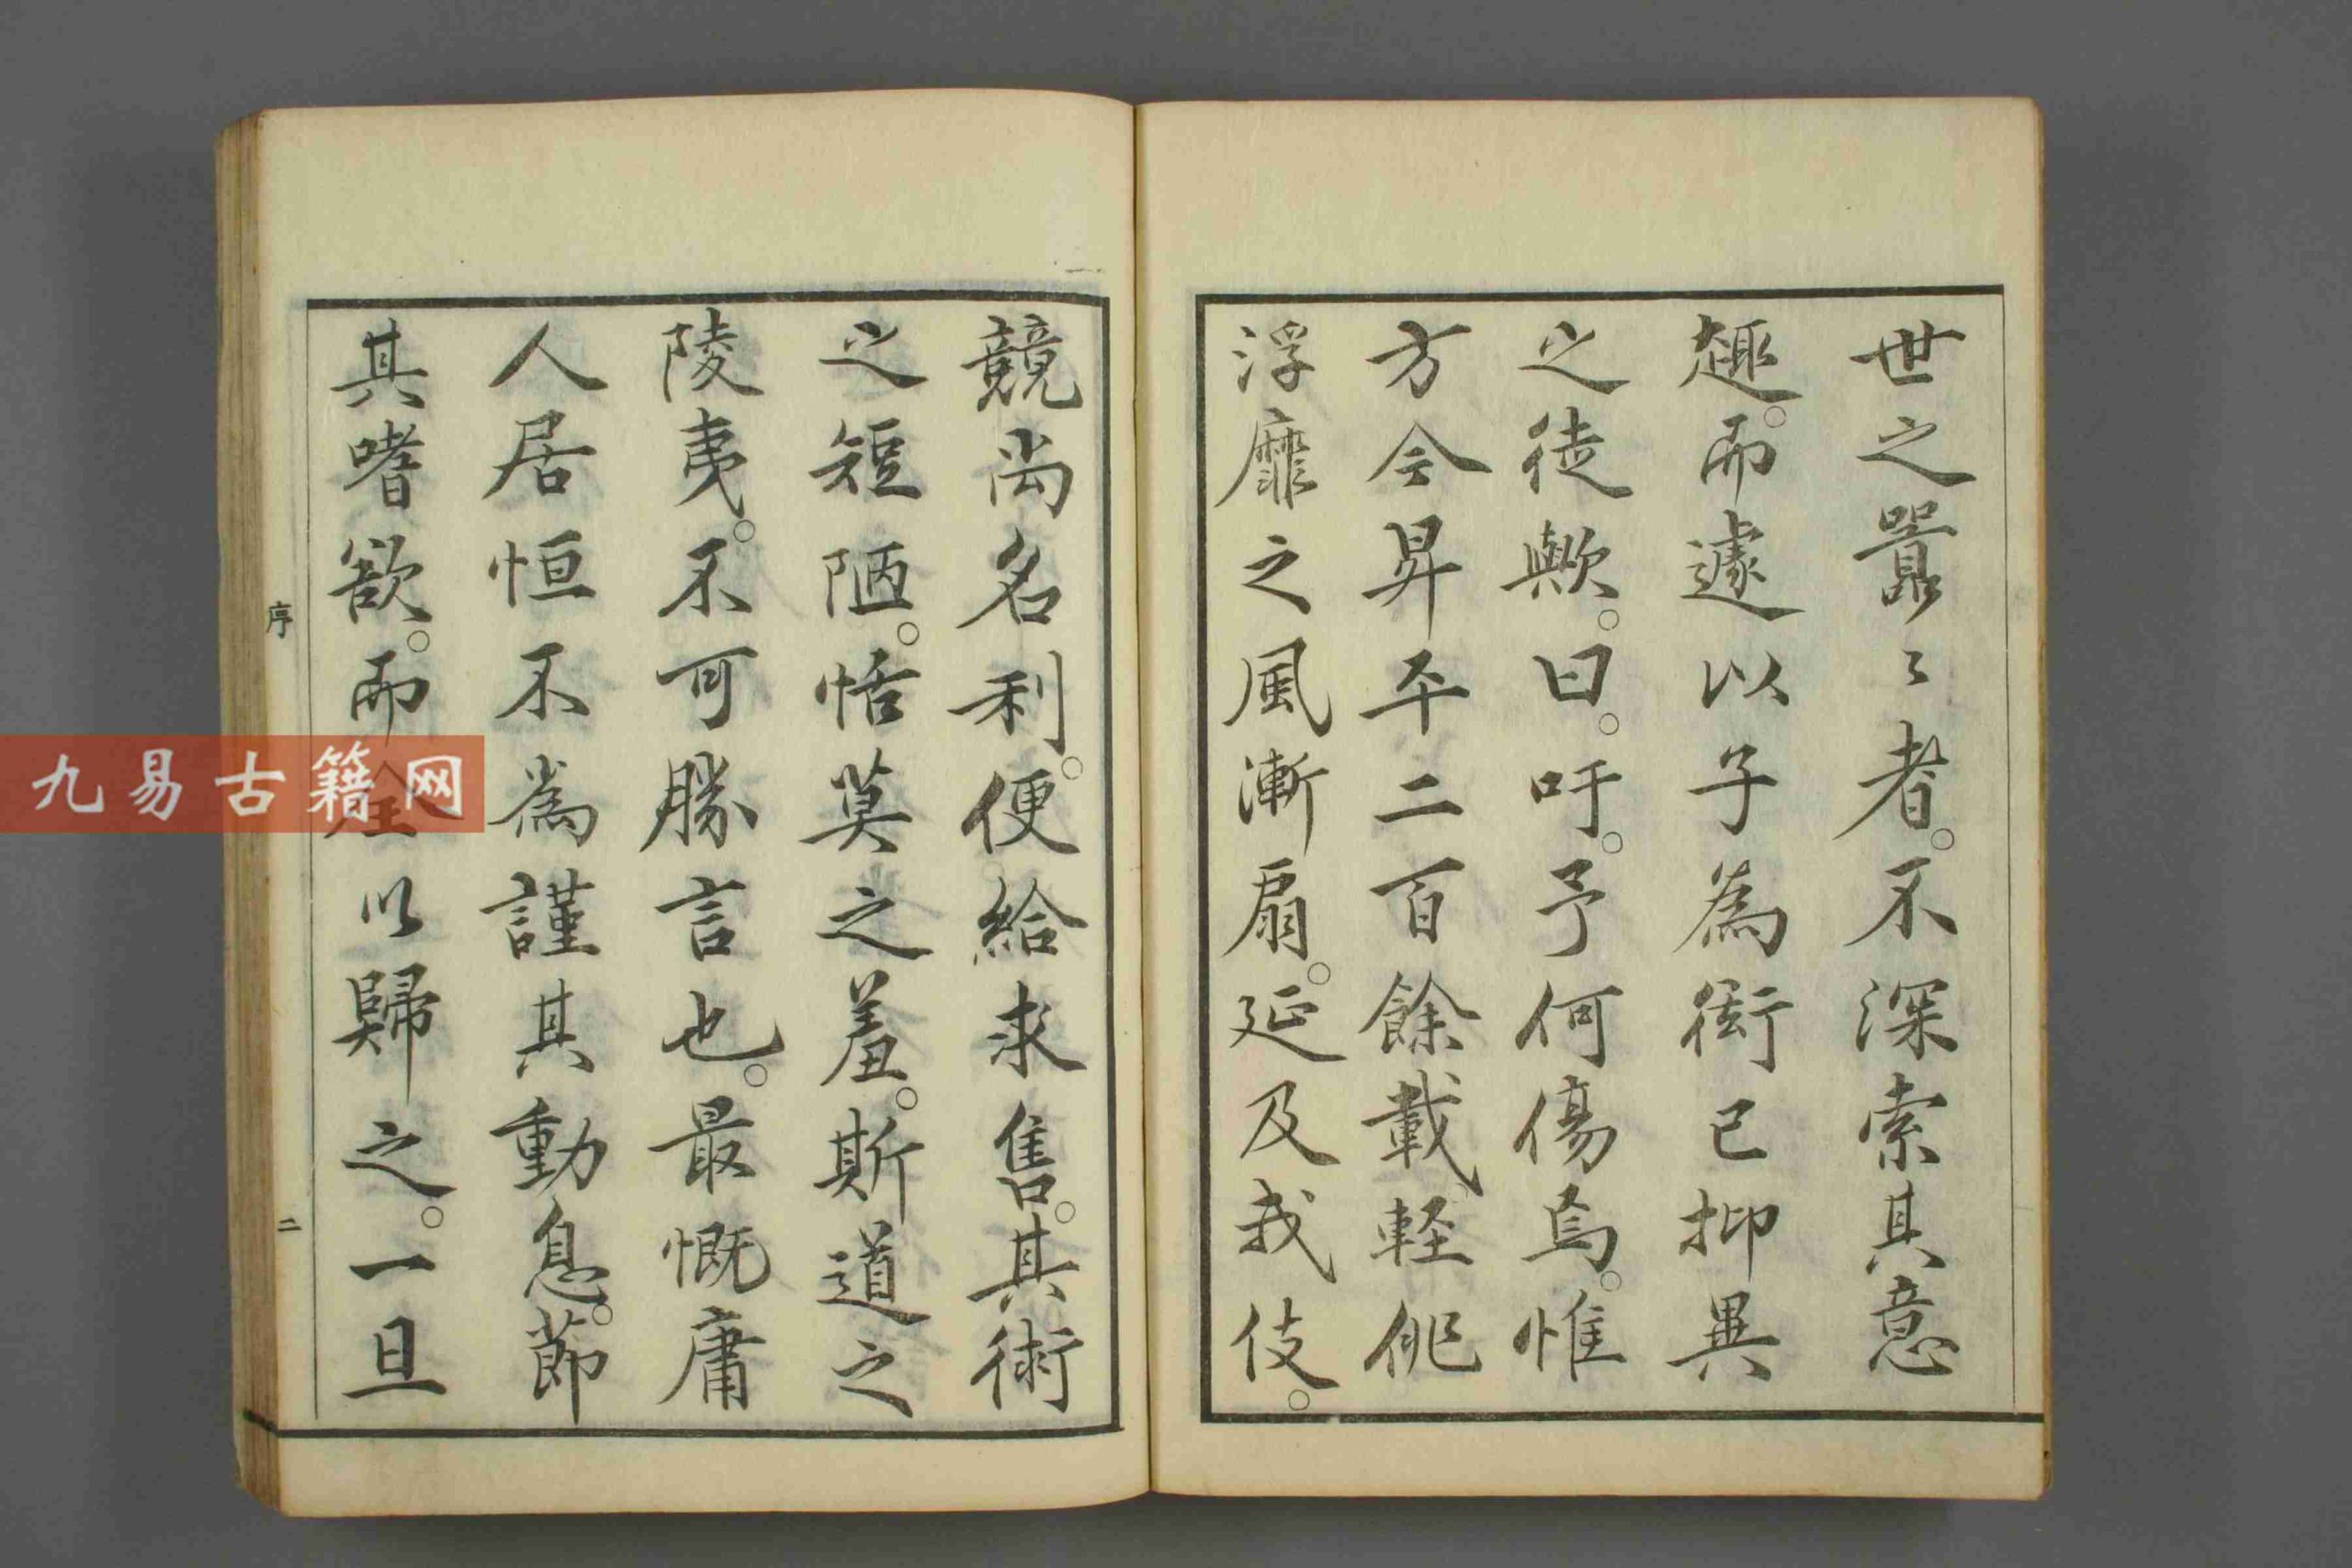 世之嚣〻者。不深索其意
趣。而遽以子為衒已抑異
之徒歟。曰。吁。予何傷焉。惟
方今昇平二百餘載軽佻
浮靡之風漸扇。延及我伎。
競尚名利。便給求售。其術
之短陋。恬莫之羞。斯道之
陵夷。不可勝言也。最慨庸
人居恒不為謹其動息。節
其嗜欲。而全以歸之。一旦
序
二
九易古籍网